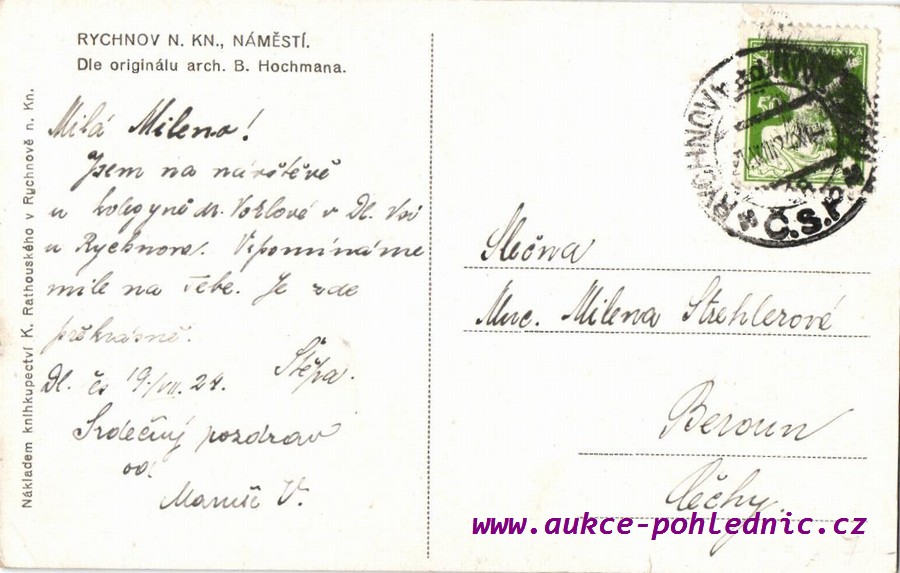 RYCHNOV N. KN., NÁMĚSTÍ.
Dle originálu arch. B. Hochmana.
Nákladem knihkupectví K. Rathouského v Rychnově n. Kn.
Milá Mileno!
Jsem na návštěvě
u kolegyně M. Vožlové v Dl. Vsi
u Rychnova. Vzpomínáme
mile na Tebe. Je zde
překrásně.
Štěpa.
Dl. 19./VII. 24.
Srdečný pozdrav
od
Maruše V.
ČESKOSLOVENSKÁ
50
RYCHNOV
Č.S.P.
Slečna
Muc. Milena Strehlerová
Beroun
Čéchy.
www.aukce-pohlednic.cz